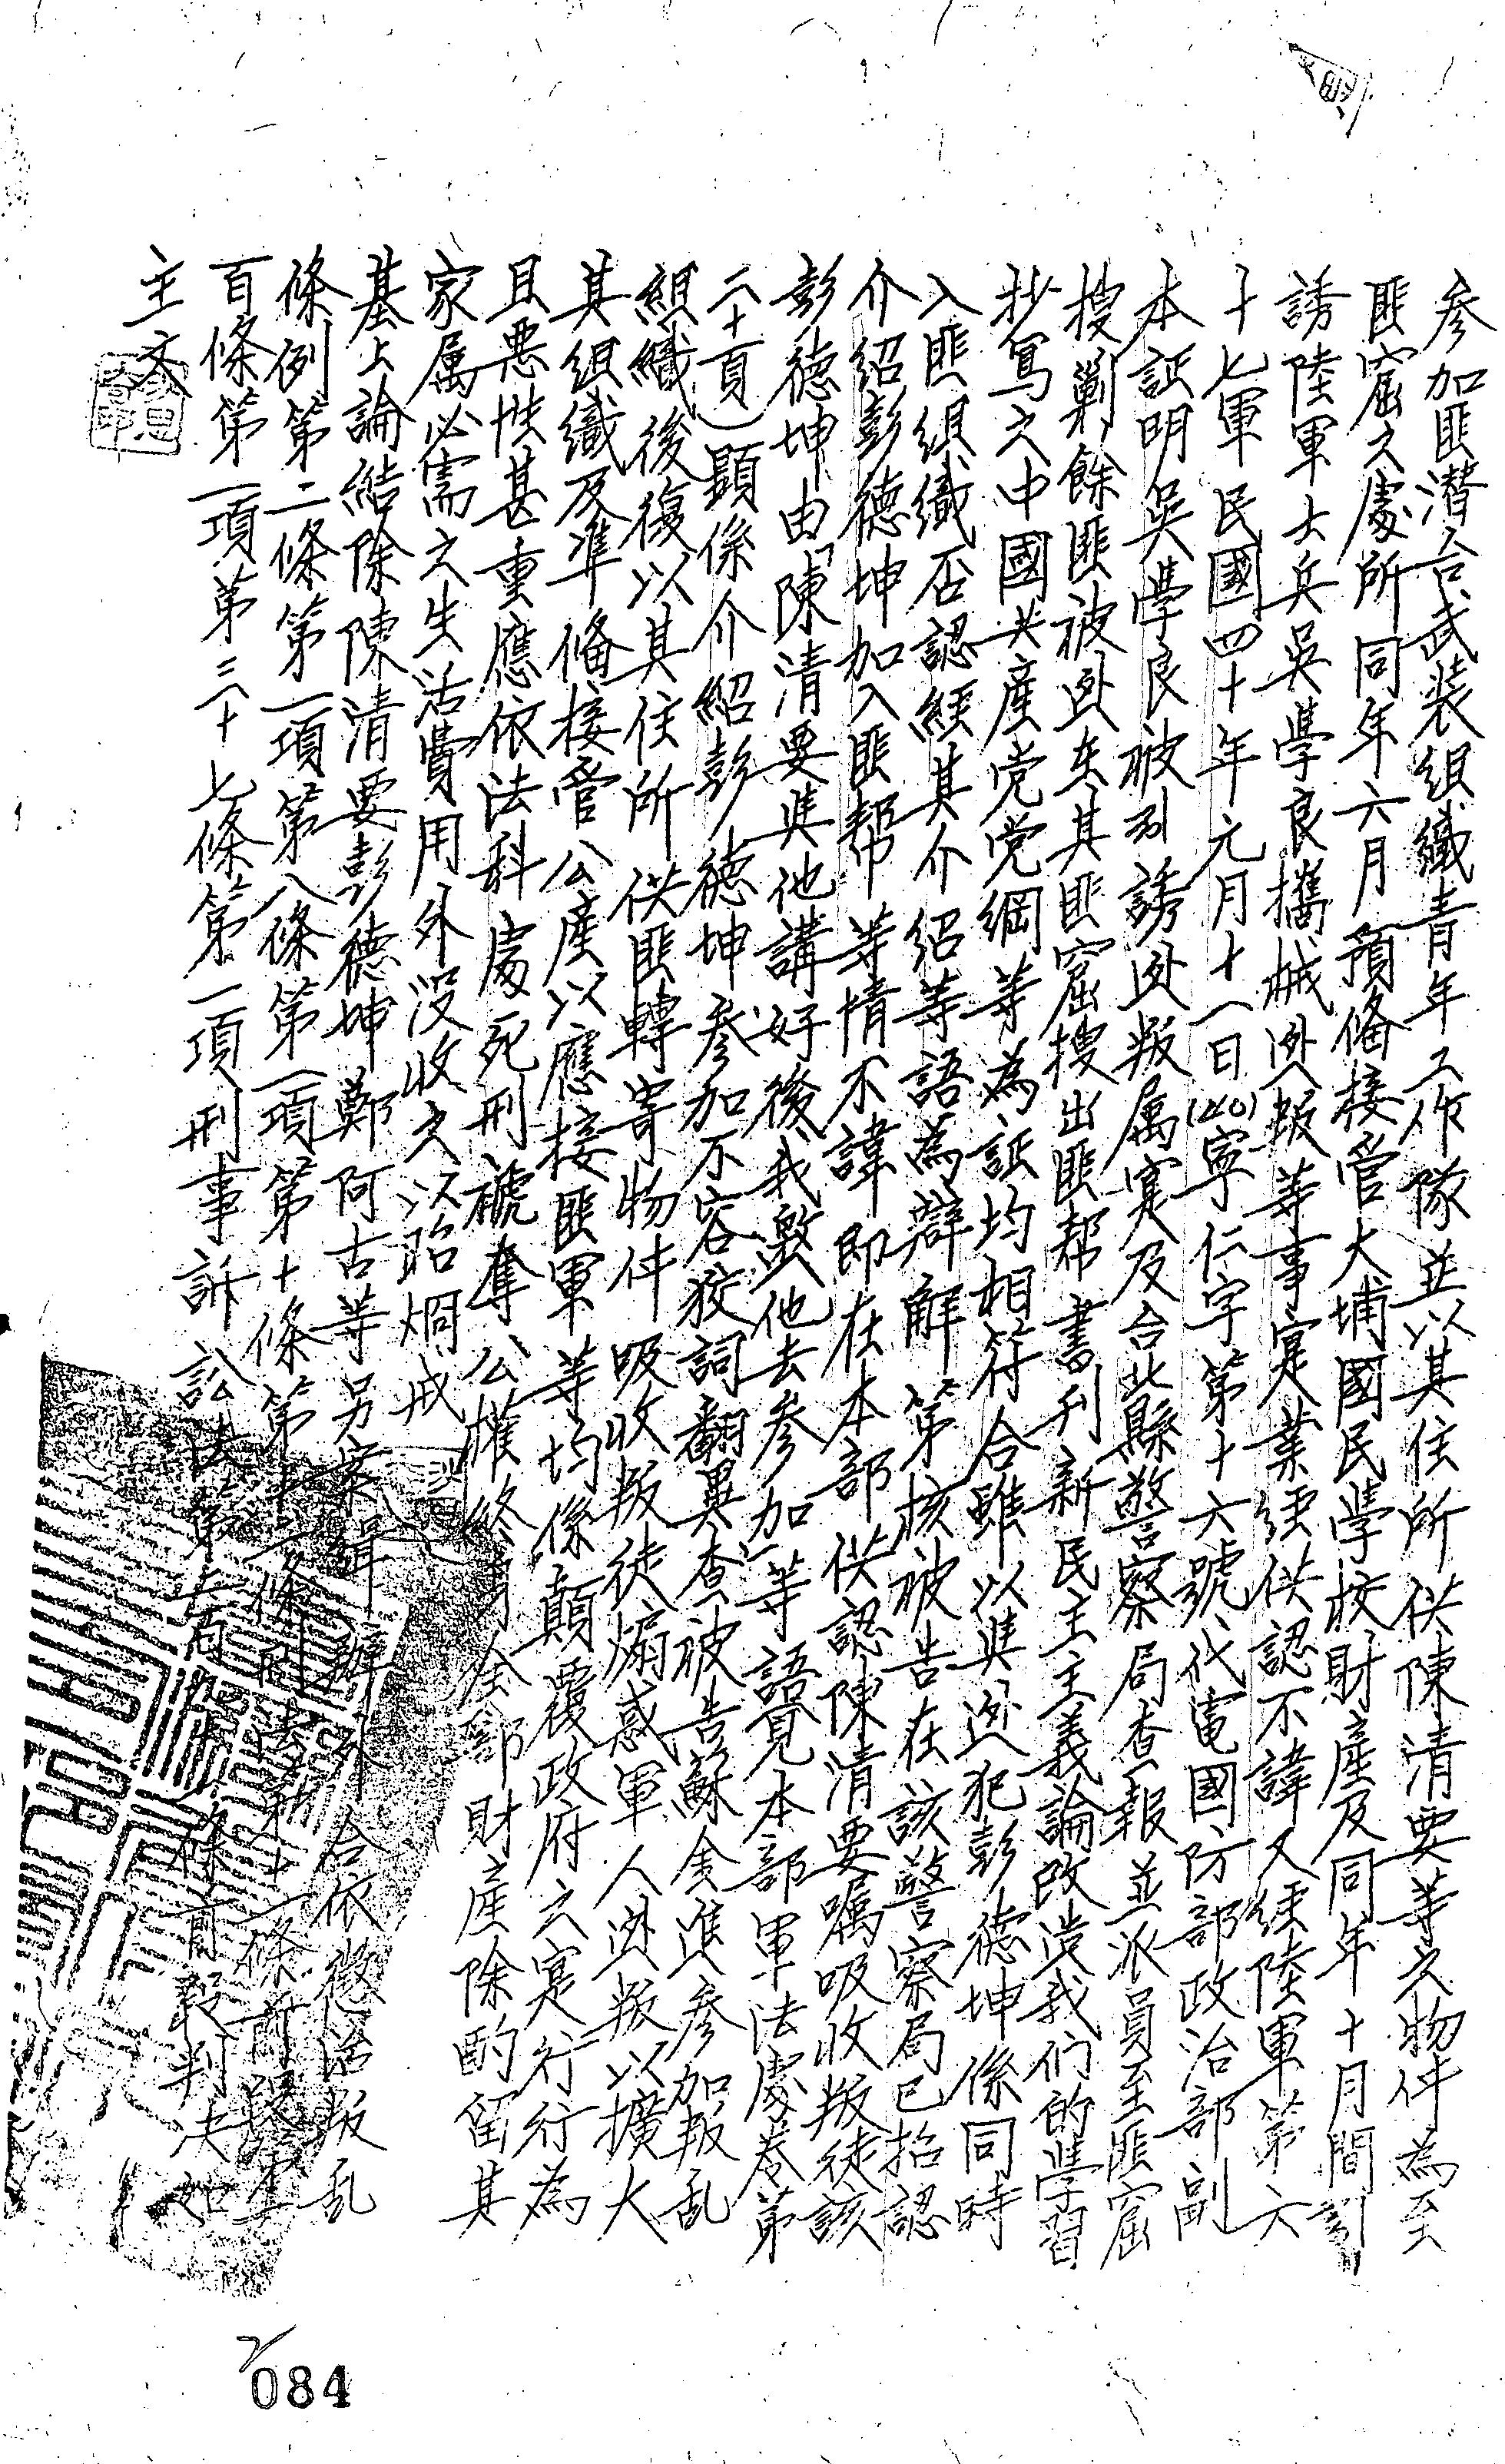 参加匪潛台武装组織青年工作隊並以其住所供陳清要等之物件為至
匪窟之處所同年六月預俻接管大埔國民學校財產及同年十月間引
誘陸軍士兵吳學良攜械迯叛等事寔業經供認不諱又經陸軍第六
十七軍民國四十年元月十一日(40)寧仁字第十六號代電國防部政治部副
本証明吳學良被引誘迯叛属寔及台北縣警察局查報並派員至匪窟
搜剿餘匪被迯在其匪窟搜出匪幇書刊新民主主義論改造我们的學習
抄寫之中國共產党党綱等為証均相符合雖以與迯犯彭德坤係同時
入匪组織否認經其介绍等語為辯解第核被告在該警察局已招認
介绍彭德坤加入匪幇等情不諱即在本部供認陳清要嘱吸收叛徒該
彭德坤由「陳清要與他講好後我邀他去參加」等語見本部軍法處卷第
二十頁)顕係介紹彭德坤参加不容狡詞翻異查被告蘇金進参加叛乱
組織後復以其住所供匪轉寄物件吸收叛徒煽惑軍人迯叛以擴大
其组織及準俻接管公產以應接匪軍等均係顛覆政府之寔行行為
且悪性甚重應依法科處死刑褫奪公權終身全部財產除酌留其
家属必需之生活費用外没收之以昭烱戒
基上論結除陳清要彭德坤鄭阿古等另案緝辦外合依懲治叛乱
條例第二條第一項第八條第一項第十條第十二條刑法第十一條前段第
百條第一項第三十七條第一項刑事訴訟法第二百條前段判决如
主文
084